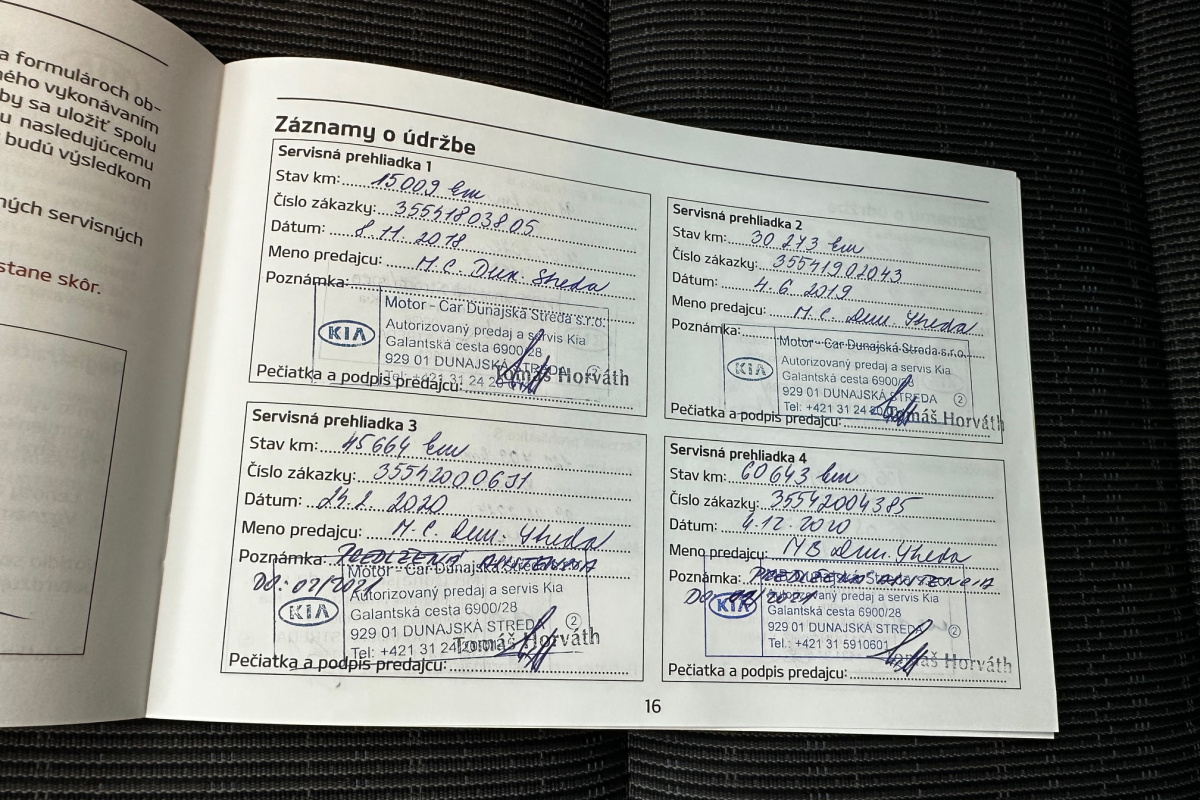 a formulároch ob-
ného vykonávaním
by sa uložiť spolu
u nasledujúcemu
budú výsledkom
ných servisných
stane skôr.
Záznamy o údržbe
Servisná prehliadka 1
Stav km: 15009 km
Číslo zákazky: 35541803805
Dátum: 8.11.2018
Meno predajcu: M.C. Dun. Streda
Poznámka:
Motor - Car Dunajská Streda s.r.o.
KIA
Autorizovaný predaj a servis Kia
Galantská cesta 6900/28
929 01 DUNAJSKÁ STREDA 2
Tel: +421 31 24 20
Tomáš Horváth
Pečiatka a podpis predajcu:
Servisná prehliadka 2
Stav km: 30 243 km
Číslo zákazky: 35541902043
Dátum: 4.6.2019
Meno predajcu: M.C. Dun. Streda
Poznámka:
Motor - Car Dunajská Streda s.r.o.
KIA
Autorizovaný predaj a servis Kia
Galantská cesta 6900/28
929 01 DUNAJSKÁ STREDA 2
Tel: +421 31 24
Tomáš Horváth
Pečiatka a podpis predajcu:
Servisná prehliadka 3
Stav km: 45 664 km
Číslo zákazky: 35542000651
Dátum: 24.2. 2020
Meno predajcu: M.C. Dun. Streda
Poznámka:
DO: 07/2021
Motor - Car Dunajská Streda s.r.o.
KIA
Autorizovaný predaj a servis Kia
Galantská cesta 6900/28
929 01 DUNAJSKÁ STREDA 2
Tel: +421 31 24
Tomáš Horváth
Pečiatka a podpis predajcu:
Servisná prehliadka 4
Stav km: 60 643 km
Číslo zákazky: 35542004385
Dátum: 4.12.2020
Meno predajcu: MB Dun. Streda
Poznámka:
DO:
KIA
Autorizovaný predaj a servis Kia
Galantská cesta 6900/28
929 01 DUNAJSKÁ STREDA 2
Tel.: +421 31 5910601
Tomáš Horváth
Pečiatka a podpis predajcu:
16